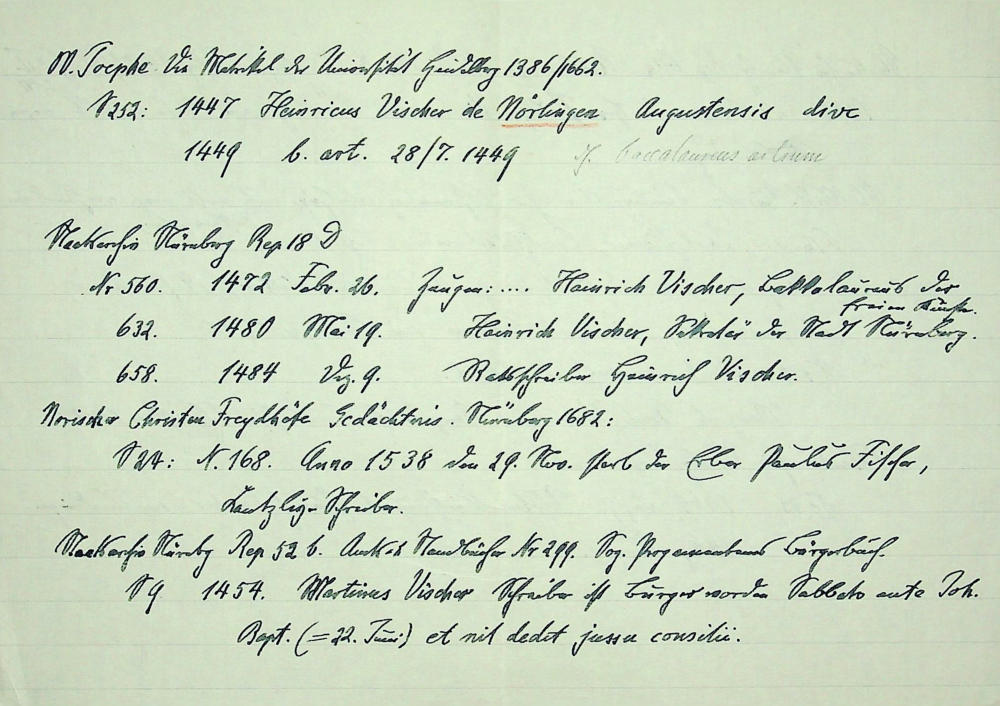 W. Toepke. Die Matrikel der Universität Heidelberg 1386/1662.
S 252: 1447 Heinricus Vischer de Nörlingen Augustensis dive
1449 b. art. 28/7. 1449 baccalaureus artium
Staatsarchiv Nürnberg Rep 18 D
Nr 560. 1472 Febr. 26. Zeugen: .... Heinrich Vischer, Bakkalaureus der
freien Künste.
632. 1480 Mai 19. Heinrich Vischer, Sekretär der Stadt Nürnberg.
658. 1484 Dez. 9. Ratsschreiber Heinrich Vischer.
Norischer Christen Freydhöfe Gedächtnis. Nürnberg 1682:
S 24: N. 168. Anno 1538 den 29. Nov. starb der Erber Paulus Fischer,
Kantzley-Schreiber.
Staatsarchiv Nürnbg Rep 52 b. Amts- Standbücher Nr 299. Sog. Pergamentenes Bürgerbuch.
S 9 1454. Martinus Vischer Schreiber ist Burger worden Sabbato ante Joh.
Bapt. (= 22. Juni) et nil dedit jussu consilii.